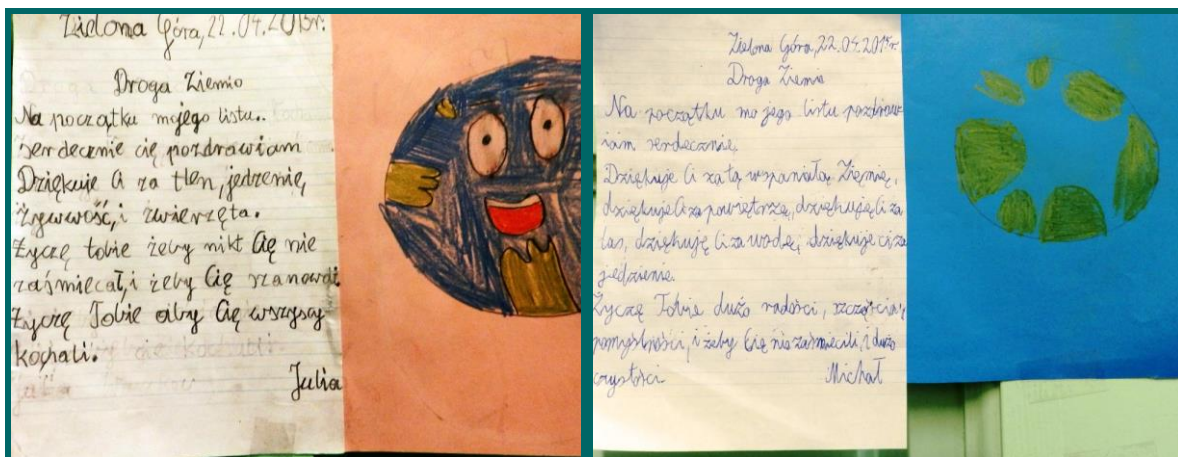 Zielona Góra, 22.04.2015r.
Droga Ziemio
Na początku mojego listu..
Serdecznie cię pozdrawiam
Dziękuje Ci za tlen, jedzenie,
żywność, i zwierzęta.
Życzę tobie żeby nikt Cię nie
zaśmiecał, i żeby Cię szanował
Życzę Tobie aby Cię wszyscy
kochali.
Julia
Zielona Góra, 22.04.2015r.
Droga Ziemio
Na początku mojego listu pozdrow-
iam serdecznie.
Dziękuje Ci za tą wspaniałą Ziemię,
dziękuje Ci za powietrze, dziękuję Ci za
las, dziękuję Ci za wodę, dziękuje ci za
jedzienie.
Życzę Tobie dużo radości, szczęścia,
pomyślności, i żeby Cię nie zaśmiecili, i dużo
czystości
Michał